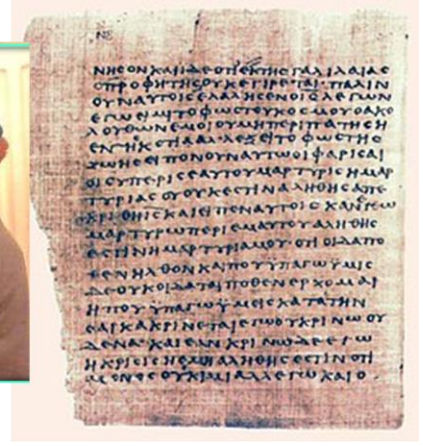 ΝΗϹΟΝΚΑΙΙΔΕΟΤΙΕΚΤΗϹΓΑΛΙΛΑΙΑϹ
ΟΠΡΟΦΗΤΗϹΟΥΚΕΓΙΡΕΤΑΙ·ΠΑΛΙΝ
ΟΥΝΑΥΤΟΙϹΕΛΑΛΗϹΕΝΟΙϹΛΕΓΩΝ
ΕΓΩΕΙΜΙΤΟΦΩϹΤΟΥΚΟϹΜΟΥΟΑΚΟ
ΛΟΥΘΩΝΕΜΟΙΟΥΜΗΠΕΡΙΠΑΤΗϹΗ
ΕΝΤΗϹΚΟΤΙΑΑΛΛΕΞΕΙΤΟΦΩϹΤΗϹ
ΖΩΗϹΕΙΠΟΝΟΥΝΑΥΤΩΟΙΦΑΡΙϹΑΙ
ΟΙϹΥΠΕΡΙϹΕΑΥΤΟΥΜΑΡΤΥΡΙϹΗΜΑΡ
ΤΥΡΙΑϹΟΥΟΥΚΕϹΤΙΝΑΛΗΘΗϹΑΠΕ
ΚΡΙΘΗΙϹΚΑΙΕΙΠΕΝΑΥΤΟΙϹΚΑΝΕΓΩ
ΜΑΡΤΥΡΩΠΕΡΙΕΜΑΥΤΟΥΑΛΗΘΗϹ
ΕϹΤΙΝΗΜΑΡΤΥΡΙΑΜΟΥ·ΟΤΙΟΙΔΑΠΟ
ΘΕΝΗΛΘΟΝΚΑΙΠΟΥΥΠΑΓΩΥΜΙϹ
ΔΕΟΥΚΟΙΔΑΤΑΙΠΟΘΕΝΕΡΧΟΜΑΙ
ΗΠΟΥΥΠΑΓΩΥΜΕΙϹΚΑΤΑΤΗΝ
ϹΑΡΚΑΚΡΙΝΕΤΑΙΕΓΩΟΥΚΡΙΝΩΟΥ
ΔΕΝΑ·ΚΑΙΕΑΝΚΡΙΝΩΔΕΕΓΩ
ΗΚΡΙϹΙϹΗΕΜΗΑΛΗΘΗϹΕϹΤΙΝΟΤΙ
ΜΟΝΟϹΟΥΚΙΜΙΑΛΛΕΓΩΚΑΙΟ